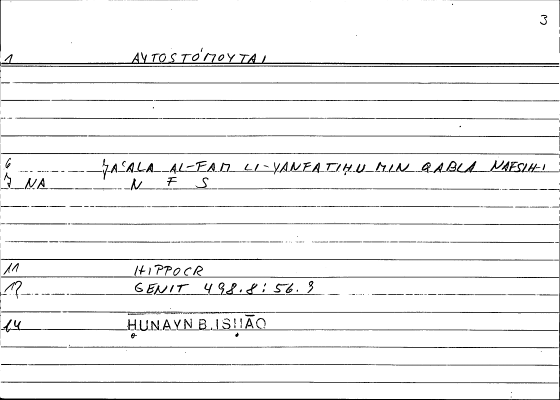 3
1 ΑΥΤΟSΤΌΠΟΥΤΑΙ
6 ǦAʿALA AL-FAM LI-YANFATIḤU MIN QABLA NAFSIHI
7 NA N F S
11 HIPPOCR
12 GENIT 498.8:56.9
14 ḤUNAYN B. ISḤĀQ